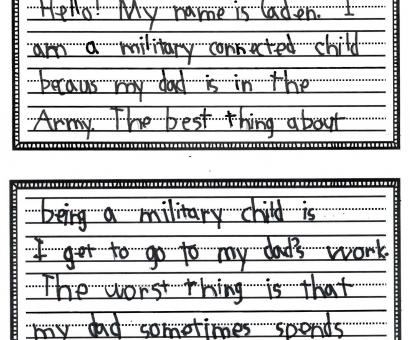 Hello! My name is Caden. I
am a military connected child
becaus my dad is in the
Army. The best thing about
being a military child is
I get to go to my dad's work.
The worst thing is that
my dad sometimes spends